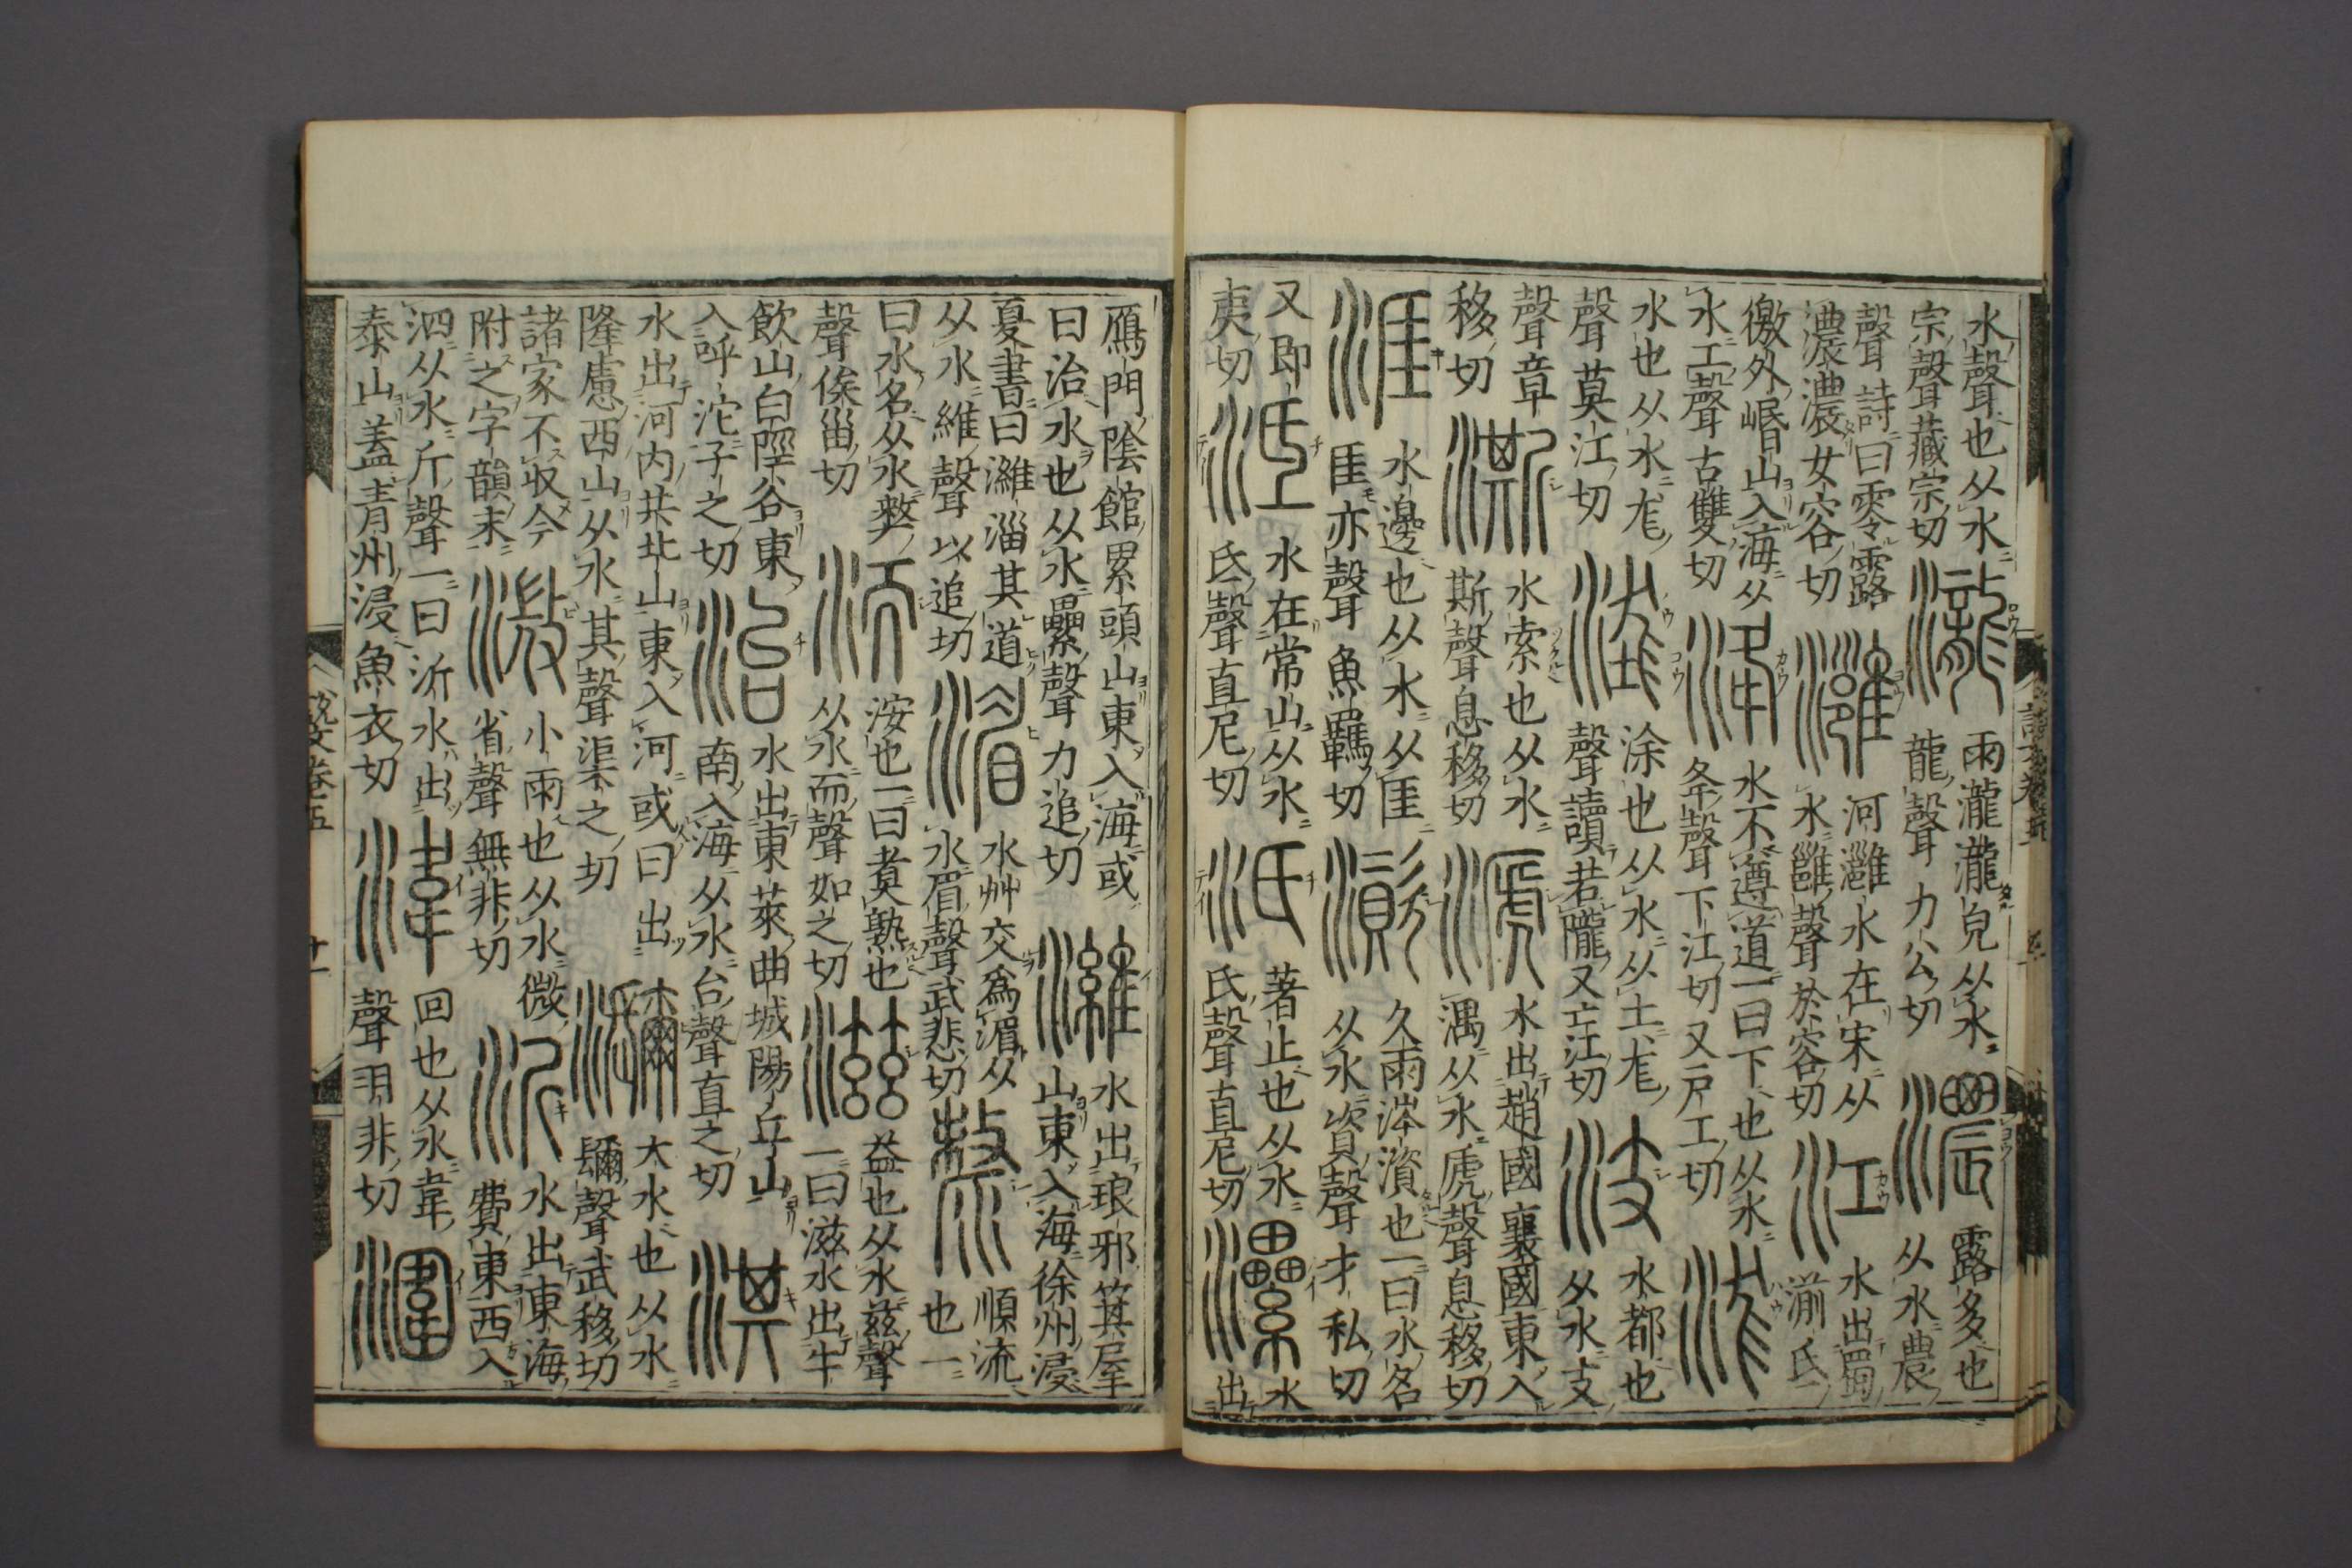 水聲也从水
宗聲藏宗切
瀧
雨瀧瀧皃从水
龍聲力公切
濃
露多也
从水農
聲詩曰零露
濃濃女容切
灉
河灉水在宋从
水雝聲於容切
江
水出蜀
湔氐
徼外崏山入海从
水工聲古雙切
洚
水不遵道一曰下也从水
夅聲下江切又戶工切
浝
水也从水尨
聲莫江切
涂也从水从土尨
聲讀若隴又亡江切
汥
水都也
从水支
聲章
移切
澌
水索也从水
斯聲息移切
㴲
水出趙國襄國東入
湡从水虒聲息移切
涯
水邊也从水从厓
厓亦聲魚羈切
澬
久雨涔澬也一曰水名
从水資聲才私切
又即
夷切
泜
水在常山从水
氐聲直尼切
汦
著止也从水
氏聲直尼切
灅
水
出
鴈門陰館累頭山東入海或
曰治水也从水纍聲力追切
濰
水出琅邪箕屋
山東入海徐州浸
夏書曰濰淄其道
从水維聲以追切
湄
水艸交爲湄从
水眉聲武悲切
漦
順流
也一
曰水名从水𠩺
聲俟甾切
洏
洝也一曰煑熟也
从水而聲如之切
滋
益也从水兹聲
一曰滋水出牛
飲山白陘谷東
入呼沱子之切
治
水出東萊曲城陽丘山
南入海从水台聲直之切
淇
水出河内共北山東入河或曰出
隆慮西山从水其聲渠之切
瀰
大水也从水
镾聲武移切
諸家不収今
附之字韻末
溦
小雨也从水微
省聲無非切
沂
水出東海
費東西入
泗从水斤聲一曰沂水出
泰山蓋青州浸魚衣切
湋
回也从水韋
聲羽非切
潿
説文卷五
十一